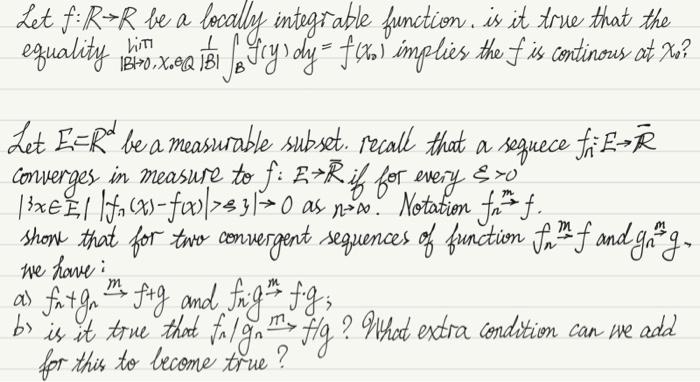 Let f: R→R be a locally integrable function. is it true that the
equality lim |B|→0, x₀∈Q 1/|B| ∫_B f(y) dy = f(x₀) implies the f is continous at x₀?
Let E=R^d be a measurable subset. recall that a sequece fₙ: E→R̄
converges in measure to f: E→R̄ if for every ε>0
|{x∈E| |fₙ(x)-f(x)|>ε}|→0 as n→∞. Notation fₙ →^m f.
show that for two convergent sequences of function fₙ →^m f and gₙ →^m g,
we have:
a) fₙ+gₙ →^m f+g and fₙ·g →^m f·g;
b) is it true that fₙ/gₙ →^m f/g? What extra condition can we add
for this to become true?